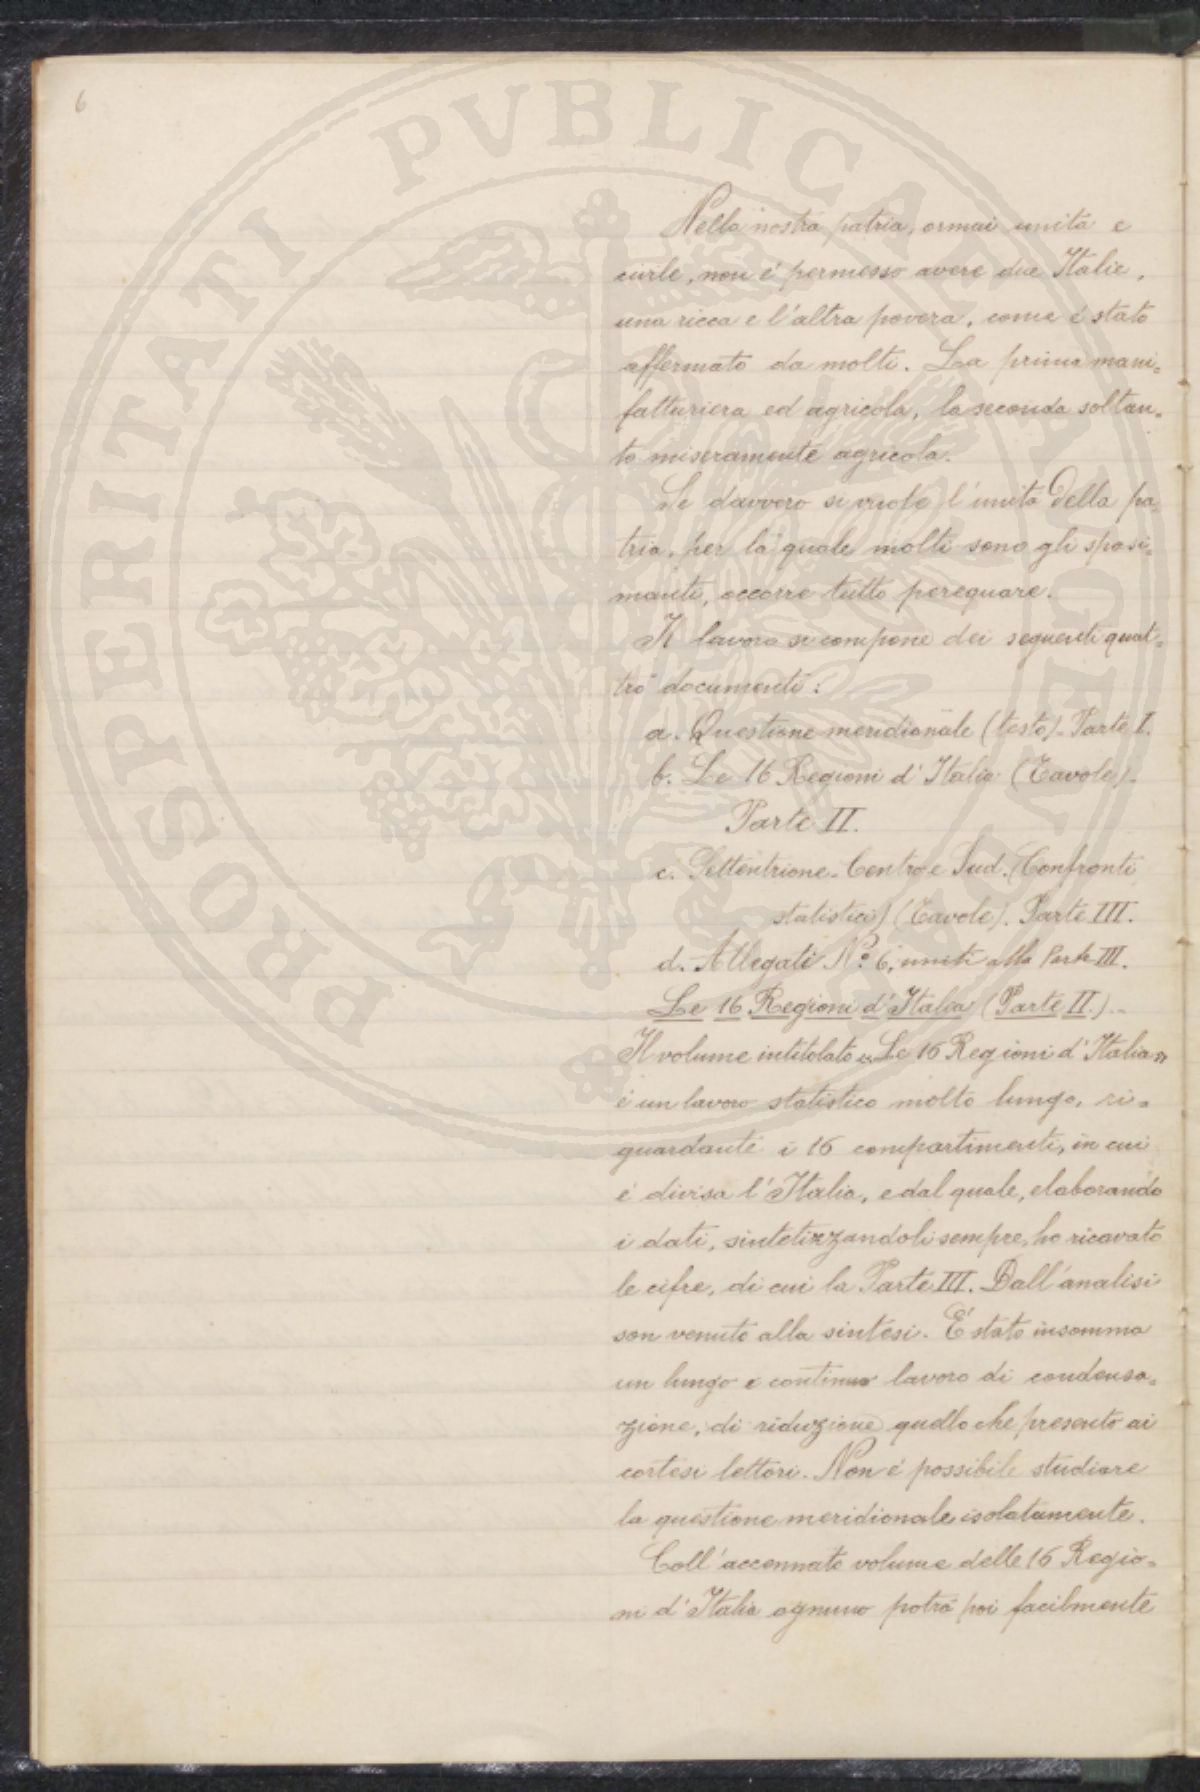 6
Nella nostra patria, ormai unita e
civile, non é permesso avere due Italie,
una ricca e l'altra povera, come é stato
affermato da molti. La prima mani=
fatturiera ed agricola, la seconda soltan=
to miseramente agricola.
Se davvero si vuole l'unita della pa
tria, per la quale molti sono gli spasi=
manti, occorre tutto perequare.
Il lavoro si compone dei seguenti quat=
tro documenti:
a. Questione meridionale (testo)- Parte I.
b. Le 16 Regioni d'Italia (Tavole)-
Parte II.
c. Settentrione-Centro e Sud. (Confronti
statistici) (Tavole). Parte III.
d. Allegati Nº 6, uniti alla Parte III.
Le 16 Regioni d'Italia (Parte II.).-
Il volume intitolato "Le 16 Regioni d'Italia"
é un lavoro statistico molto lungo, ri=
guardante i 16 compartimenti, in cui
é divisa l'Italia, e dal quale, elaborando
i dati, sintetizzandoli sempre, ho ricavato
le cifre, di cui la Parte III. Dall'analisi
son venuto alla sintesi. É stato insomma
un lungo e continuo lavoro di condensa=
zione, di riduzione quello che presento ai
cortesi lettori. Non é possibile studiare
la questione meridionale isolatamente.
Coll'accennato volume delle 16 Regio=
ni d'Italia ognuno potrá poi facilmente
PROSPERITATI PVBLICAE AVGENDAE